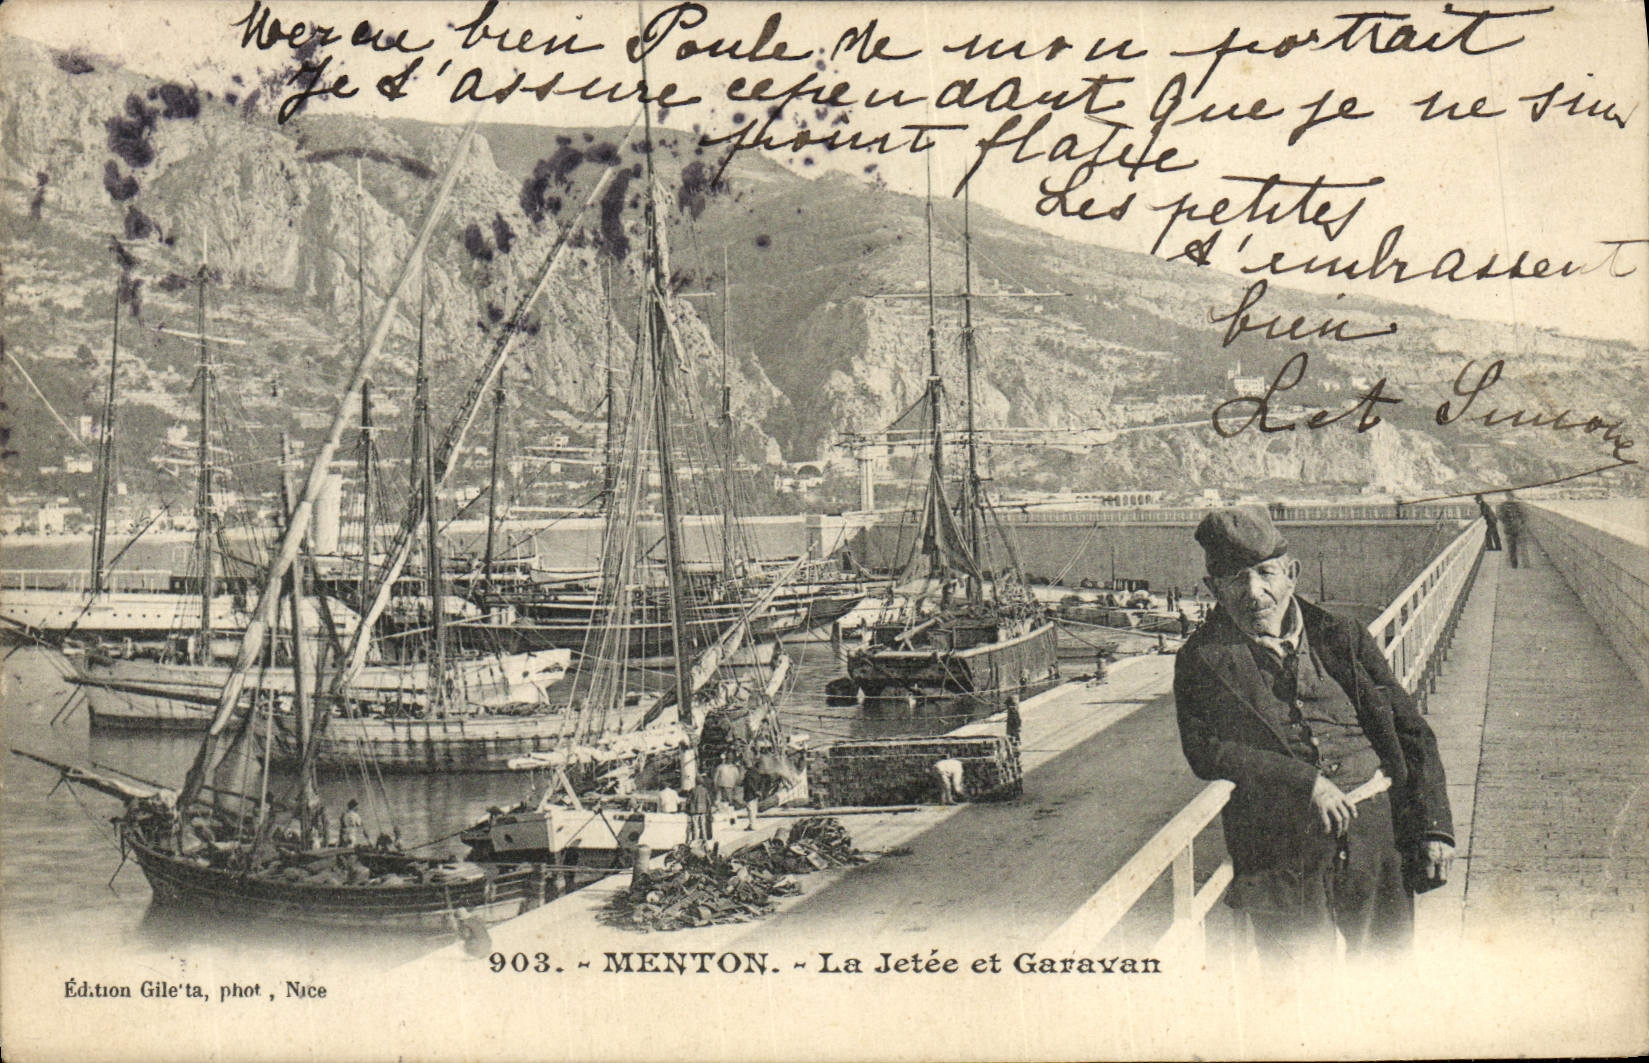 bien Poule de mon portrait
Je t'assure cependant que je ne suis
point flatée
Les petites
t'embrassent
bien
L et Simone
903. - MENTON. - La Jetée et Garavan
Édition Giletta, phot, Nice